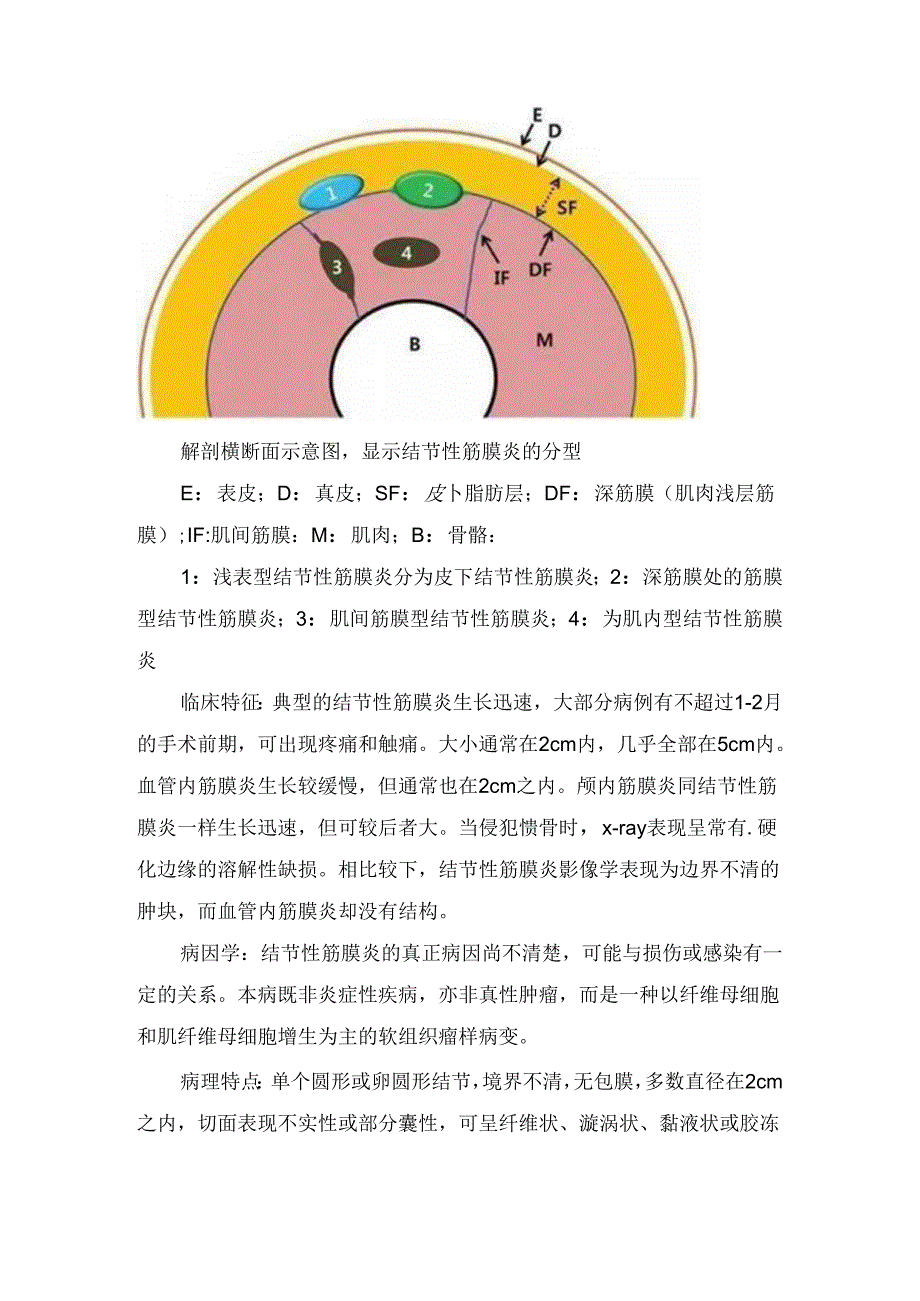 E
D
1
2
SF
3
4
IF
DF
B
M
解剖横断面示意图，显示结节性筋膜炎的分型
E：表皮；D：真皮；SF：皮卜脂肪层；DF：深筋膜（肌肉浅层筋
膜）;IF:肌间筋膜：M：肌肉；B：骨骼：
1：浅表型结节性筋膜炎分为皮下结节性筋膜炎；2：深筋膜处的筋膜
型结节性筋膜炎；3：肌间筋膜型结节性筋膜炎；4：为肌内型结节性筋膜
炎
临床特征：典型的结节性筋膜炎生长迅速，大部分病例有不超过1-2月
的手术前期，可出现疼痛和触痛。大小通常在2cm内，几乎全部在5cm内。
血管内筋膜炎生长较缓慢，但通常也在2cm之内。颅内筋膜炎同结节性筋
膜炎一样生长迅速，但可较后者大。当侵犯馈骨时，x-ray表现呈常有.硬
化边缘的溶解性缺损。相比较下，结节性筋膜炎影像学表现为边界不清的
肿块，而血管内筋膜炎却没有结构。
病因学：结节性筋膜炎的真正病因尚不清楚，可能与损伤或感染有一
定的关系。本病既非炎症性疾病，亦非真性肿瘤，而是一种以纤维母细胞
和肌纤维母细胞增生为主的软组织瘤样病变。
病理特点：单个圆形或卵圆形结节，境界不清，无包膜，多数直径在2cm
之内，切面表现不实性或部分囊性，可呈纤维状、漩涡状、黏液状或胶冻